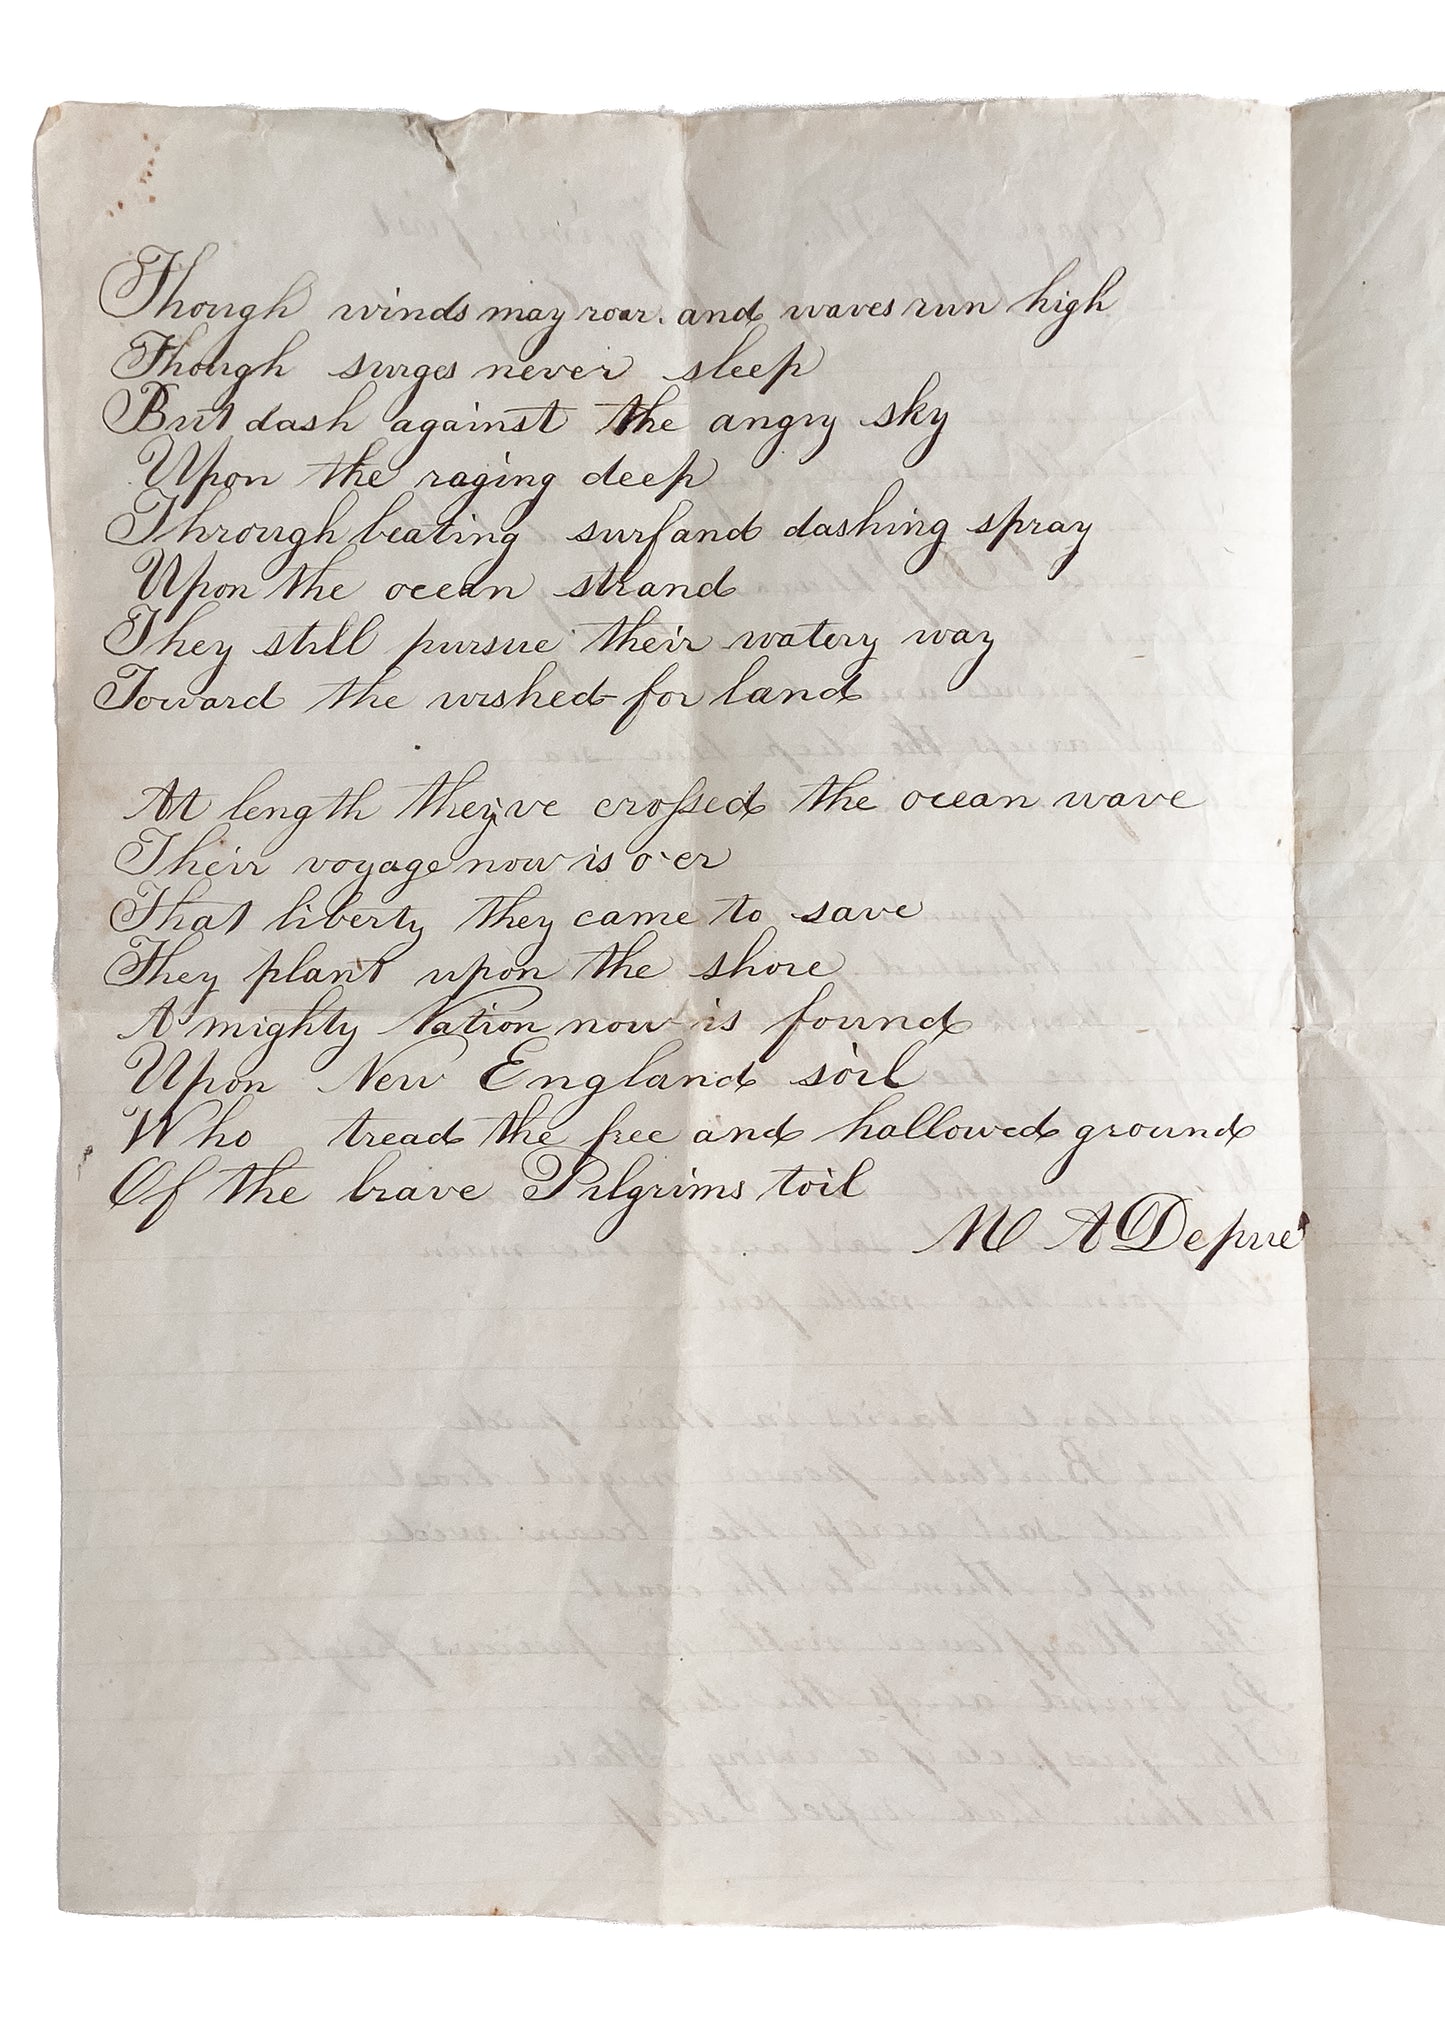 Though winds may roar. and waves run high
Though surges never sleep
But dash against the angry sky
Upon the raging deep
Through beating surf and dashing spray
Upon the ocean strand
They still pursue their watery way
Toward the wished-for land
At length they,ve crossed the ocean wave
Their voyage now is o'er
That liberty they came to save
They plant upon the shore
A mighty Nation now is found
Upon New England soil
Who tread the free and hallowed ground
Of the brave Pilgrims toil
M A Depue